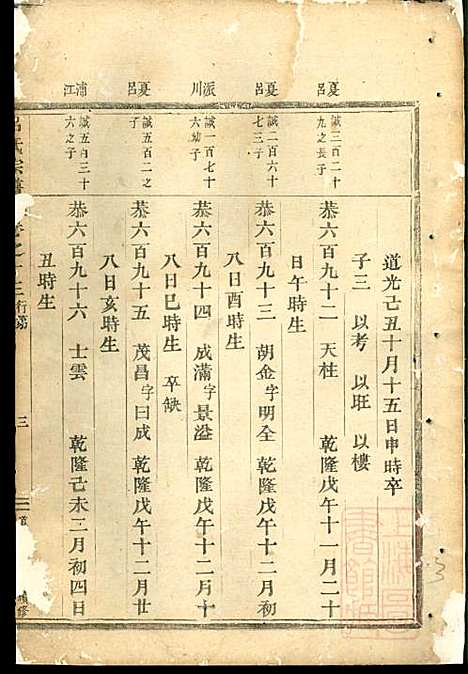 道光己丑十月十五日申時卒
子三 以考 以旺 以樓
夏呂
誠三百二十
九之長子
恭六百九十二 天柱 乾隆戊午十一月二十
日午時生
夏呂
誠二百六十
七三子
恭六百九十三 胡金字明全 乾隆戊午十二月初
八日酉時生
派川
誠一百七十
六幼子
恭六百九十四 成滿字景溢 乾隆戊午十二月十
八日巳時生 卒缺
夏呂
誠五百二之
子
恭六百九十五 茂昌字曰成 乾隆戊午十二月廿
八日亥時生
浦江
誠五百三十
六之子
恭六百九十六 士雲 乾隆己未二月初四日
丑時生
呂氏宗譜 卷之十三 行第 三